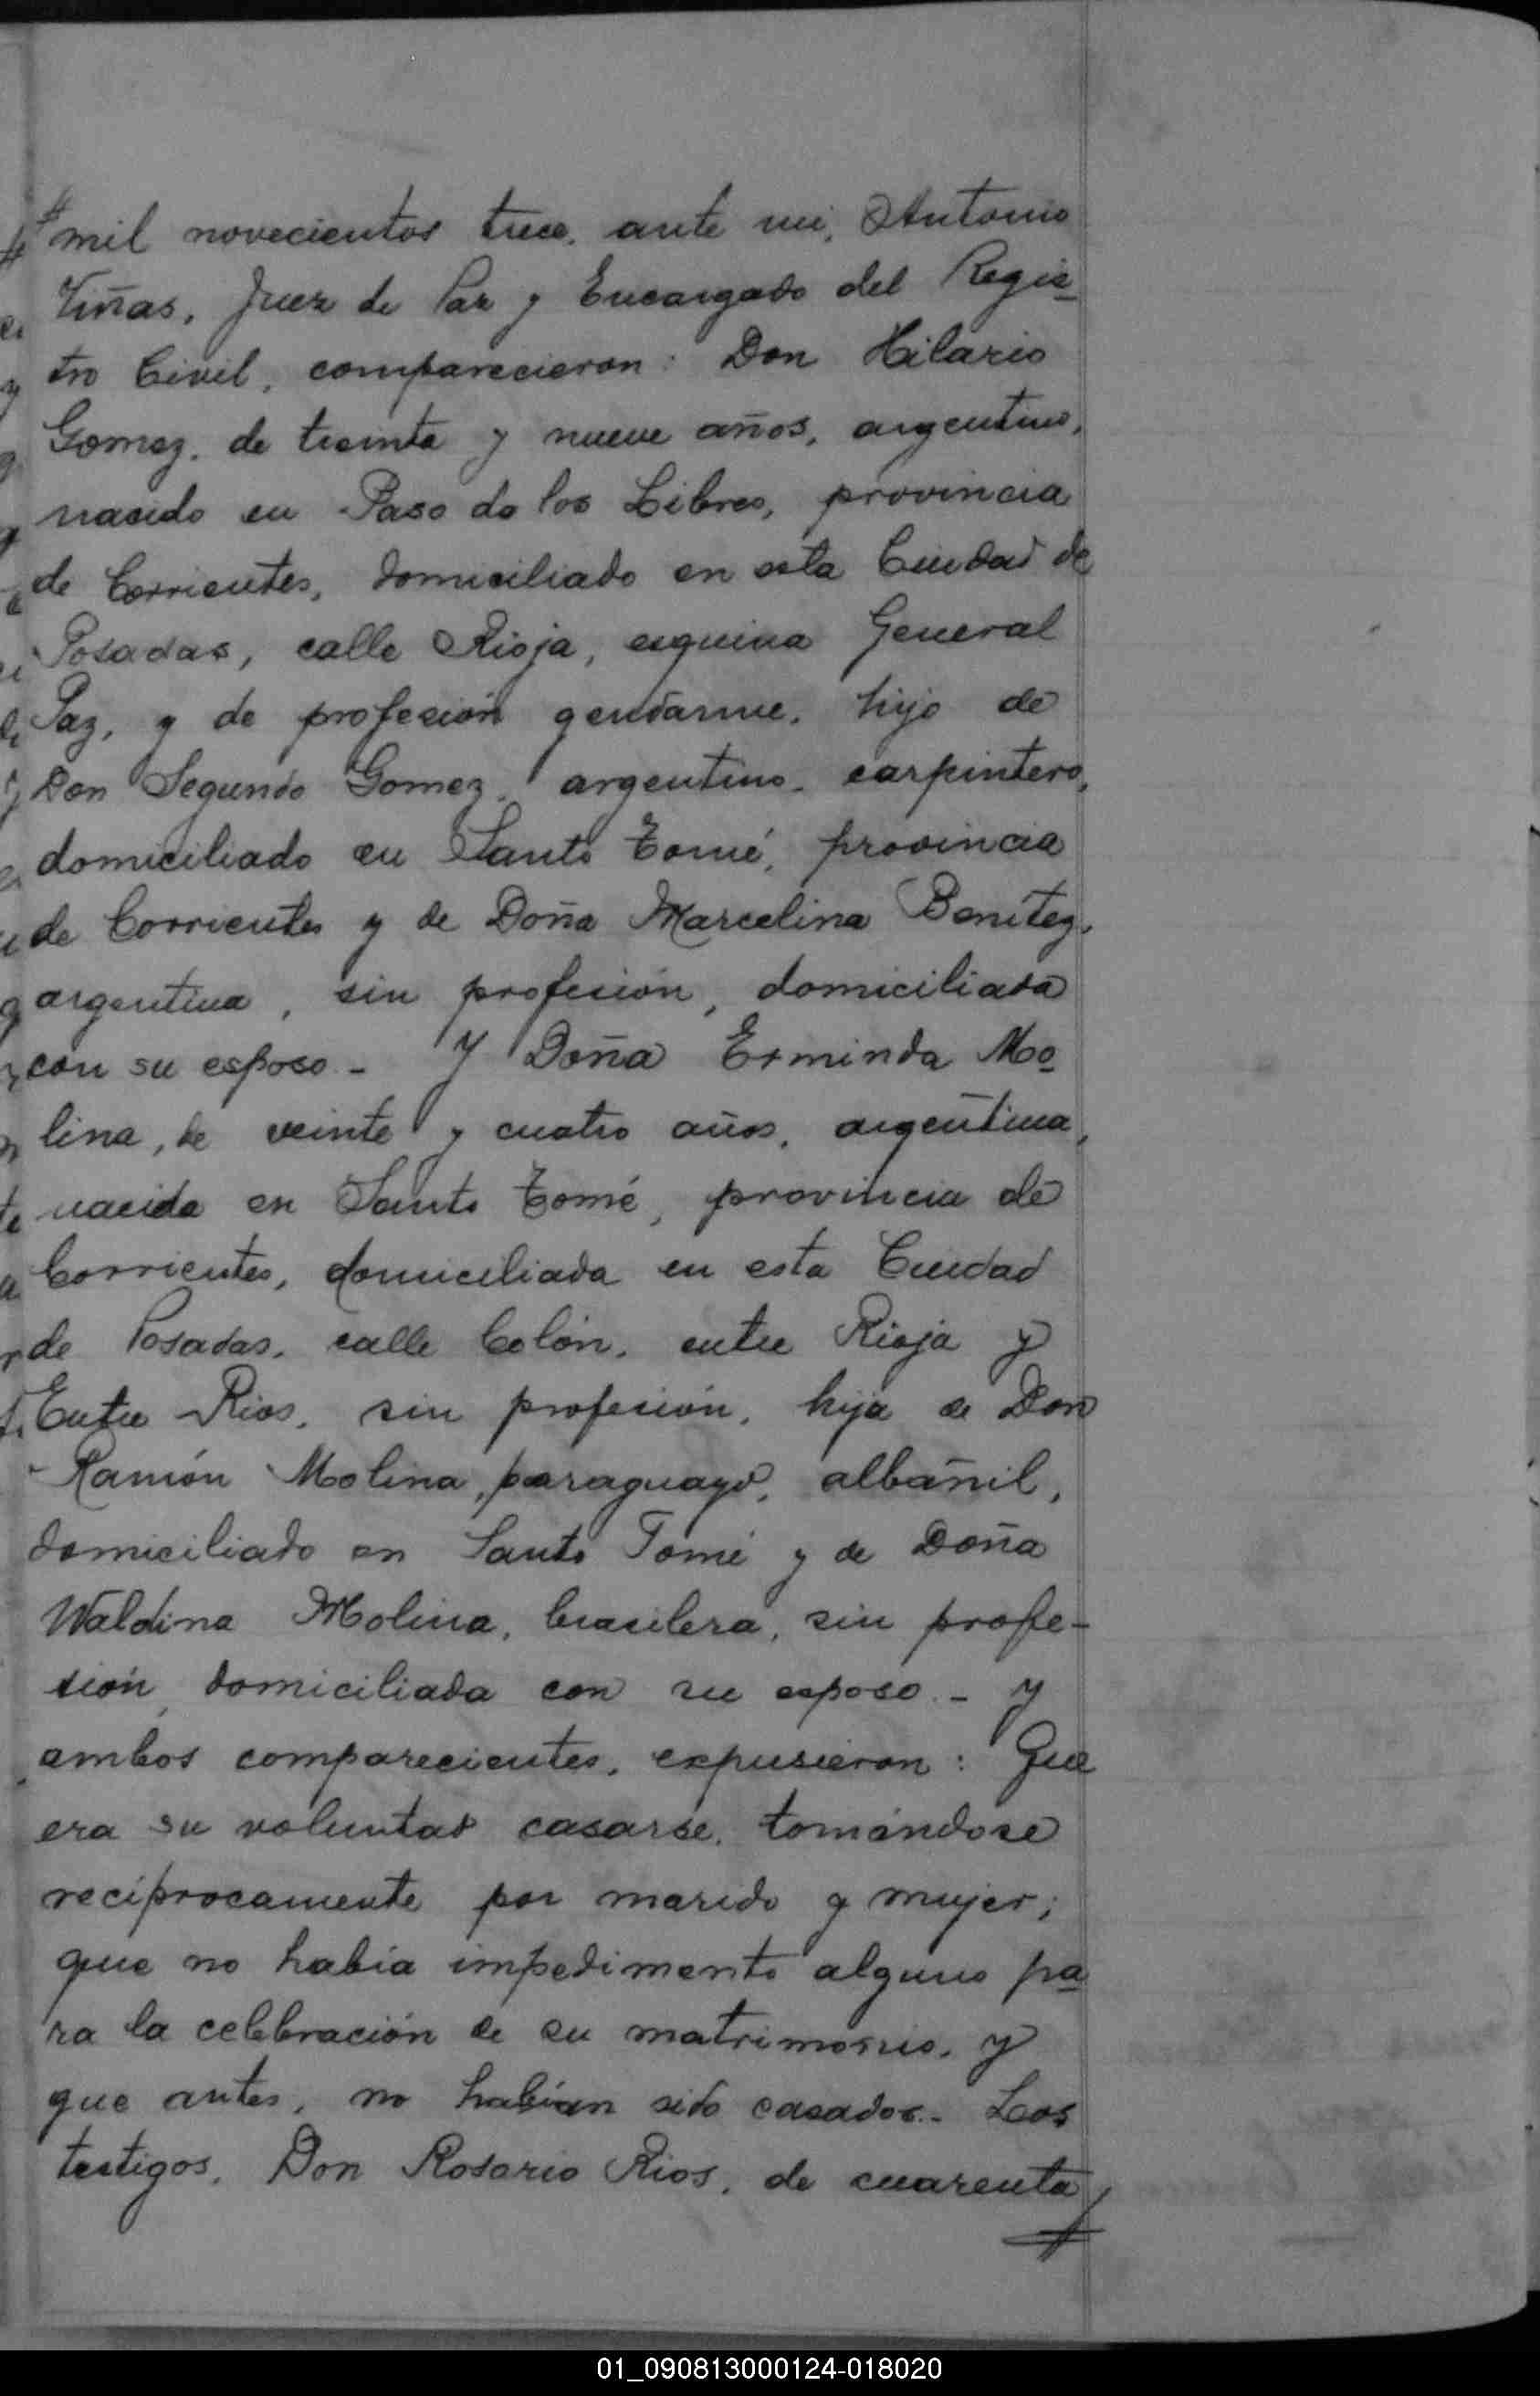 mil novecientos trece, ante mi, Antonio
Viñas, Juez de Paz y Encargado del Regis_
tro Civil, comparecieron: Don Hilario
Gomez, de treinta y nueve años, argentino,
nacido en Paso de los Libres, provincia
de Corrientes, domiciliado en esta Ciudad de
Posadas, calle Rioja, esquina General
Paz, y de profesión gendarme, hijo de
Don Segundo Gomez, argentino, carpintero,
domiciliado en Santo Tomé, provincia
de Corrientes y de Doña Marcelina Benitez,
argentina, sin profesión, domiciliada
con su esposo.- Y Doña Erminda Mo_
lina, de veinte y cuatro años, argentina,
nacida en Santo Tomé, provincia de
Corrientes, domiciliada en esta Ciudad
de Posadas, calle Colón, entre Rioja y
Entre Rios, sin profesión, hija de Don
Ramón Molina, paraguayo, albañil,
domiciliado en Santo Tomé y de Doña
Waldina Molina, brasilera, sin profe-
sión, domiciliada con su esposo.- Y
ambos comparecientes, expusieron: Que
era su voluntad casarse, tomándose
recíprocamente por marido y mujer;
que no había impedimento alguno pa_
ra la celebración de su matrimonio, y
que antes, no habían sido casados.- Los
testigos, Don Rosario Rios, de cuarenta
01_090813000124-018020